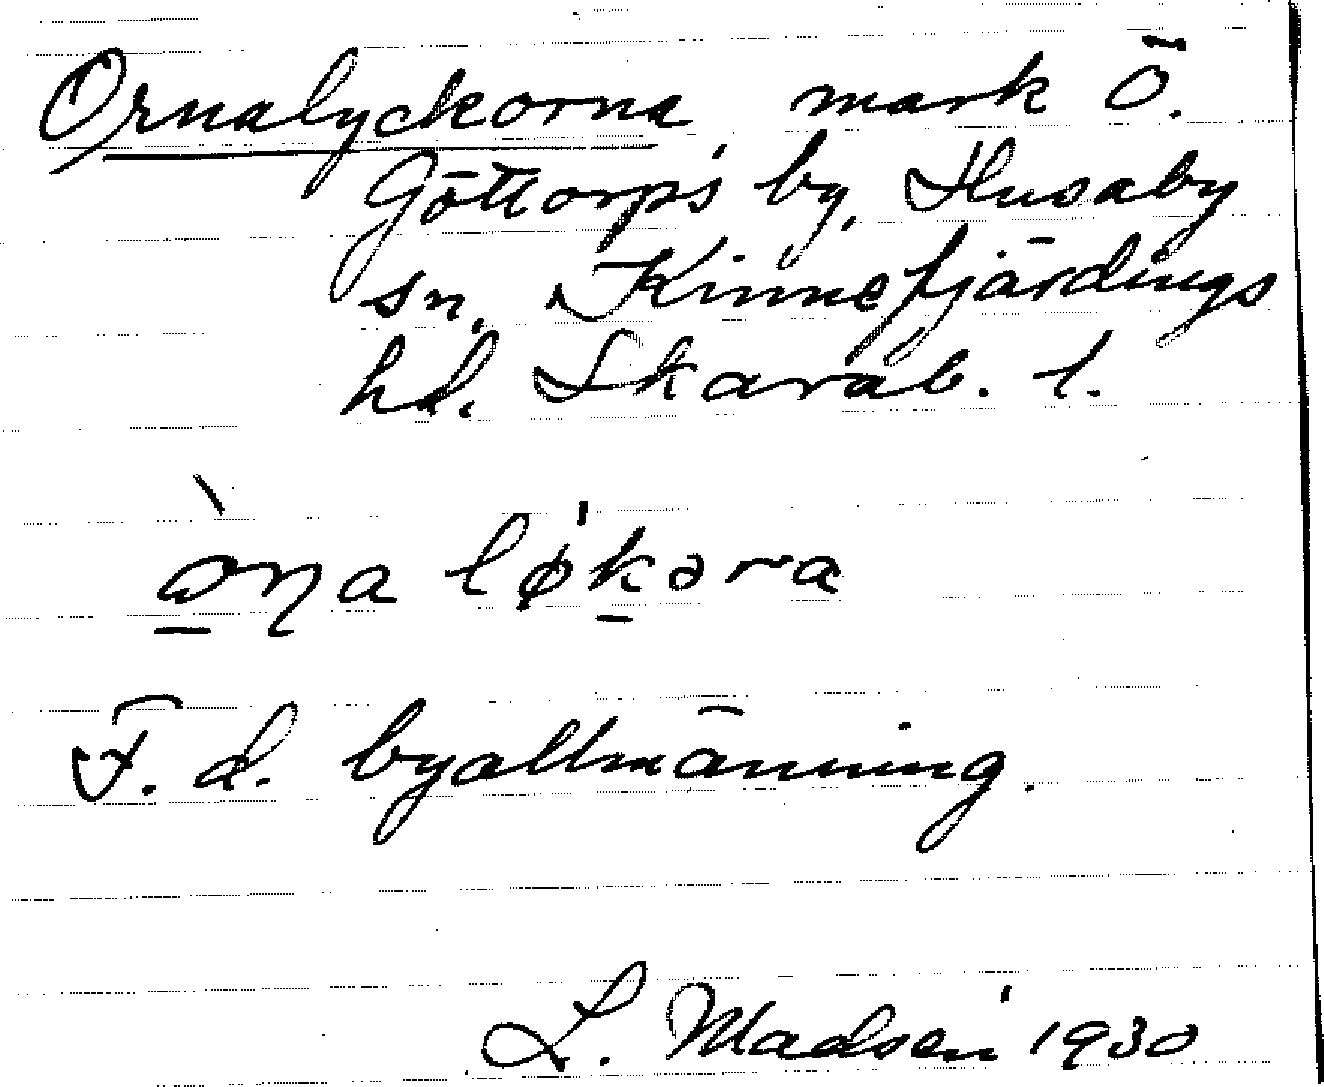 Ornalyckorna mark Ö.
Göttorps by, Husaby
sn, Kinnefjärdings
hd. Skarab. l.
F. d. byallmänning.
L. Madsén 1930